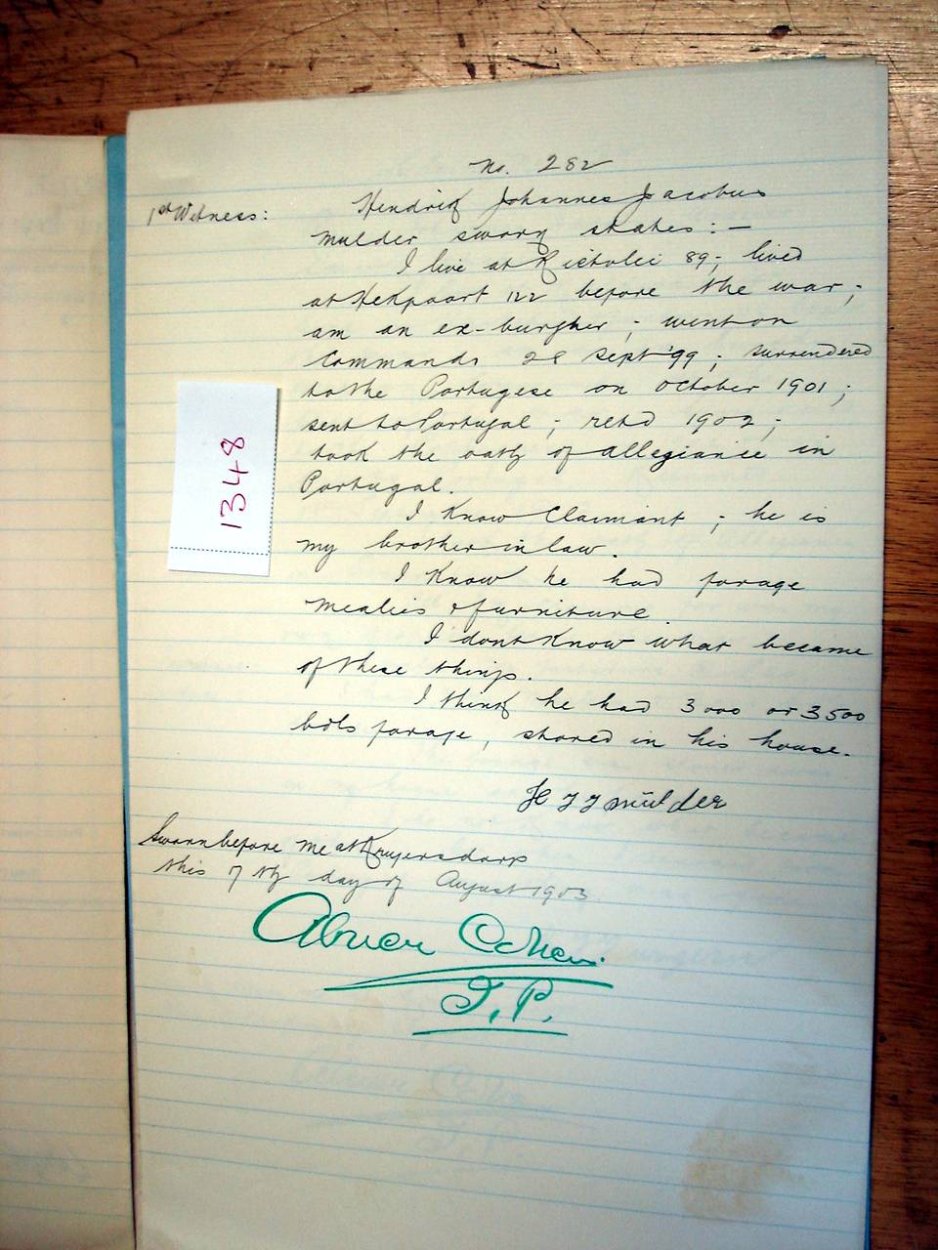 No. 282
1st Witness: Hendrik Johannes Jacobus
Mulder sworn states: —
I live at Rietvlei 89; lived
at Hekpoort 122 before the war;
am an ex-burgher; went on
Commando 28 Sept '99; surrendered
to the Portugese on October 1901;
sent to Portugal; retd 1902;
took the oath of allegiance in
Portugal.
I know Claimant; he is
my brother in law.
I know he had forage
mealies & furniture.
I dont know what became
of these things.
I think he had 3000 or 3500
bdls forage, stored in his house.
H J J Mulder
Sworn before me at Krugersdorp
this 7th day of August 1903
Abner Cohen
J.P.
1348